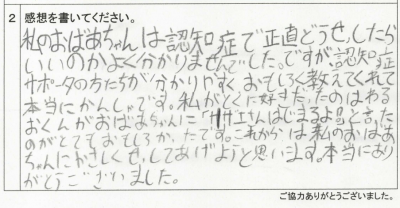 2 感想を書いてください。
私のおばあちゃんは認知症で正直どうせしたら
いいのかよく分かりませんでした。ですが、認知症
サポータの方たちが分かりやすく、おもしろく教えてくれて
本当にかんしゃです。私がとくに好きだったのはわる
おくんがおばあちゃんに「サザエさんはじまるよ!!」と言った
のがとてもおもしろかったです。これからは私のおばあ
ちゃんにやさしくせっしてあげようと思います。本当にあり
がとうございました。
ご協力ありがとうございました。